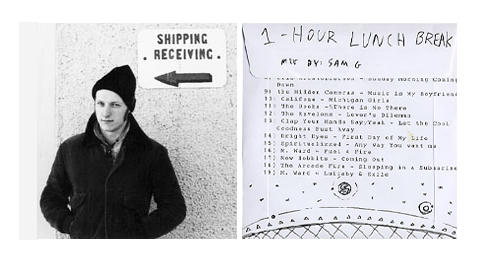 SHIPPING
. RECEIVING.
1 - HOUR LUNCH BREAK
MIX BY: SAM G
Sunday Morning Coming
Down
9) The Hidden Cameras - Music Is My Boyfriend
10) Califone - Michigan Girls
11) The Books - There Is No There
12) The Ravelons - Lover's Dilemma
13) Clap Your Hands Say Yeah - Let the Cool
Goodness Rust Away
14) Bright Eyes - First Day of My Life
15) Spiritualized - Any Way You Want Me
16) M. Ward - Fuel 4 Fire
17) New Bobbits - Coming Out
18) The Arcade Fire - Sleeping in a Submarine
19) M. Ward - Lullaby & Exile